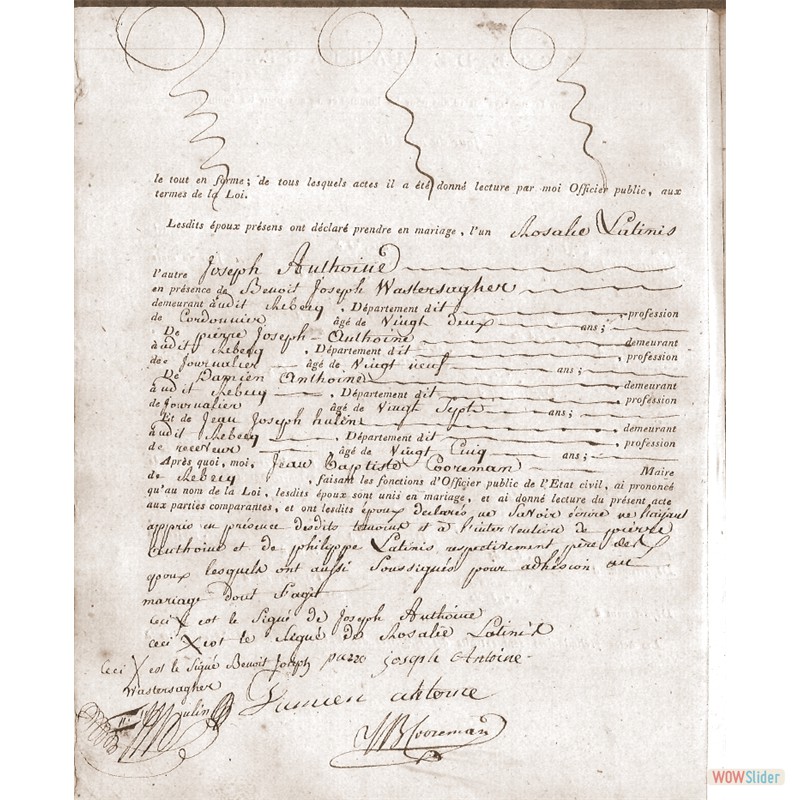 le tout en forme; de tous lesquels actes il a été donné lecture par moi Officier public, aux
termes de la Loi.
Lesdits époux présens ont déclaré prendre en mariage, l'un Rosalie Latinis
l'autre Joseph Anthoine
en présence de Benoit Joseph Wastersagher
demeurant audit Rebecq, Département dit profession
de Cordonnier âgé de Vingt deux ans;
De pierre Joseph Anthoine demeurant
audit Rebecq, Département dit profession
de Journalier âgé de Vingt neuf ans;
De Damien Anthoine demeurant
audit Rebecq, Département dit profession
de Journalier âgé de Vingt Sept ans;
Et de Jean Joseph hulin demeurant
audit Rebecq, Département dit profession
de receveur âgé de Vingt Cinq ans;
Après quoi, moi, Jean Baptiste Cooreman Maire
de Rebecq, faisant les fonctions d'Officier public de l'Etat civil, ai prononcé
qu'au nom de la Loi, lesdits époux sont unis en mariage, et ai donné lecture du présent acte
aux parties comparantes, et ont lesdits époux declarés ne Savoir écrire ne l'aiant
appris en présence desdits temoins et à l'intervention de pierre
anthoine et de philippe Latinis respectivement père des
epoux lesquels ont aussi Soussignés pour adhésion au
mariage dont s'agit
ceci X est le Signé de Joseph Anthoine
ceci X est le Signé de Rosalie Latinis
Ceci X est le Signé Benoit Joseph
Wastersagher
joseph Antoine
Damien antoine
hulin
JB Cooreman
WOWSlider